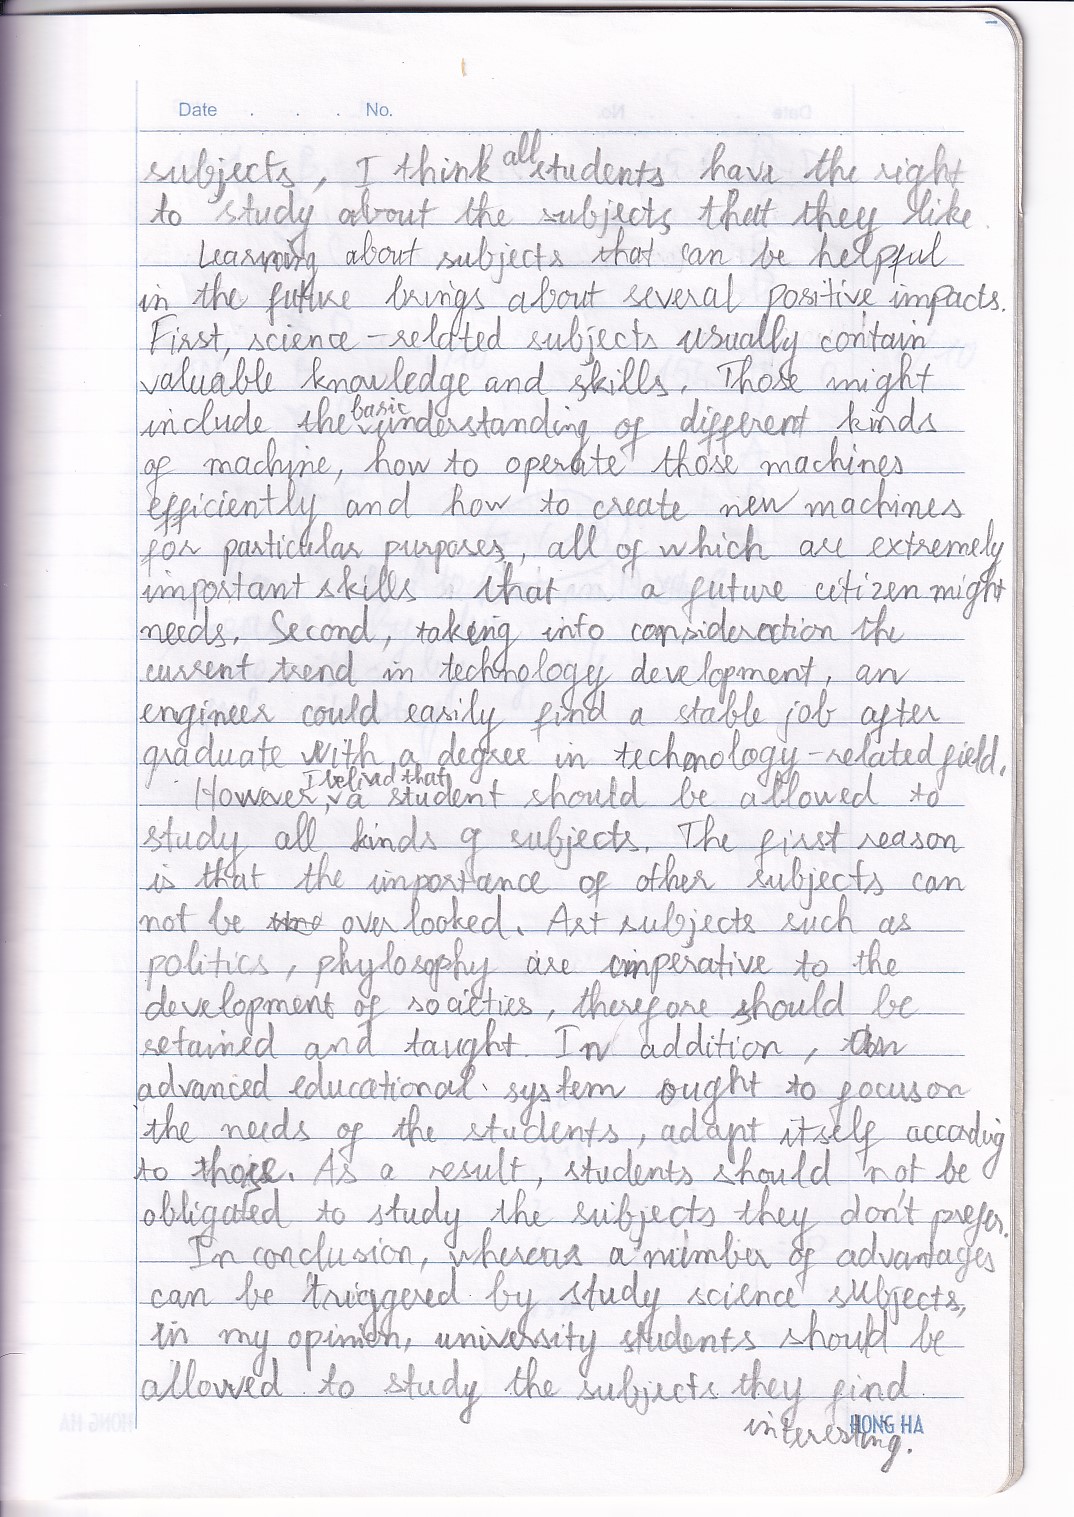 Date . . . No.
subjects, I think all students have the right
to study about the subjects that they like.
Learning about subjects that can be helpful
in the future brings about several positive impacts.
First, science-related subjects usually contain
valuable knowledge and skills. Those might
include the basic understanding of different kinds
of machine, how to operate those machines
efficiently and how to create new machines
for particular purposes, all of which are extremely
important skills that a future citizen might
needs. Second, taking into consideration the
current trend in technology development, an
engineer could easily find a stable job after
graduate with a degree in technology-related field.
However, I belived that a student should be allowed to
study all kinds of subjects. The first reason
is that the importance of other subjects can
not be overlooked. Art subjects such as
politics, phylosophy are imperative to the
development of societies, therefore should be
retained and taught. In addition, an
advanced educational system ought to focus on
the needs of the students, adapt itself according
to those. As a result, students should not be
obligated to study the subjects they don't prefer.
In conclusion, whereas a number of advantages
can be triggered by study science subjects,
in my opinion, university students should be
allowed to study the subjects they find
interesting.
HONG HA